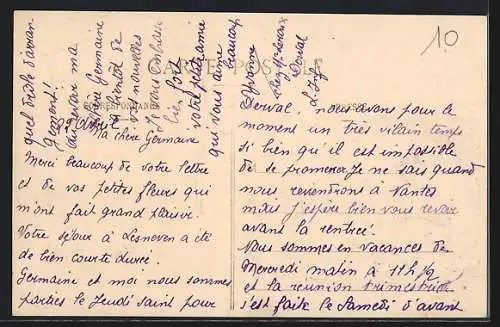 29 Avril
Ma chère Germaine
Merci beaucoup de votre lettre
et de vos petites fleurs qui
m'ont fait grand plaisir.
Votre séjour à Lesneven a été
de bien courte durée.
Germaine et moi nous sommes
parties le Jeudi saint pour
Derval, nous avons pour le
moment un très vilain temps
si bien qu'il est impossible
de se promener. Je ne sais quand
nous reviendrons à Nantes
mais j'espère bien vous revoir
avant la rentrée.
Nous sommes en vacances de
Mercredi matin à 11h ½
et la réunion trimestrielle
s'est faite le Samedi d'avant
quel drôle d'avion
au revoir ma
chère Germaine
à bientôt de
vos nouvelles
Je vous embrasse
bien fort
votre petite amie
qui vous aime
beaucoup
Yvonne
chez
Derval
L. Inf
CARTE POSTALE
CORRESPONDANCE
10